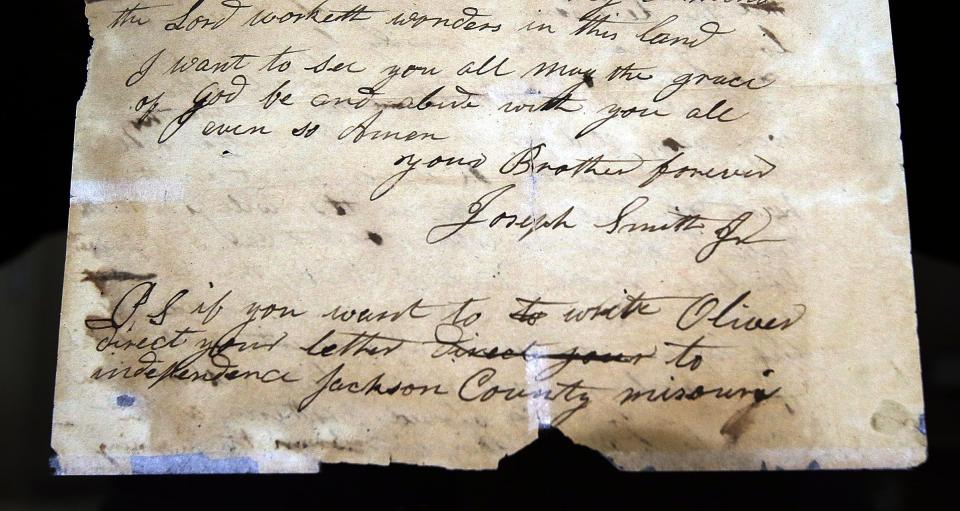 the Lord worketh wonders in this land
I want to see you all may the grace
of God be and abide with you all
even so Amen
your Brother forever
Joseph Smith Jr
P S if you want to to write Oliver
direct your letter direct your to
independence Jackson County misouri